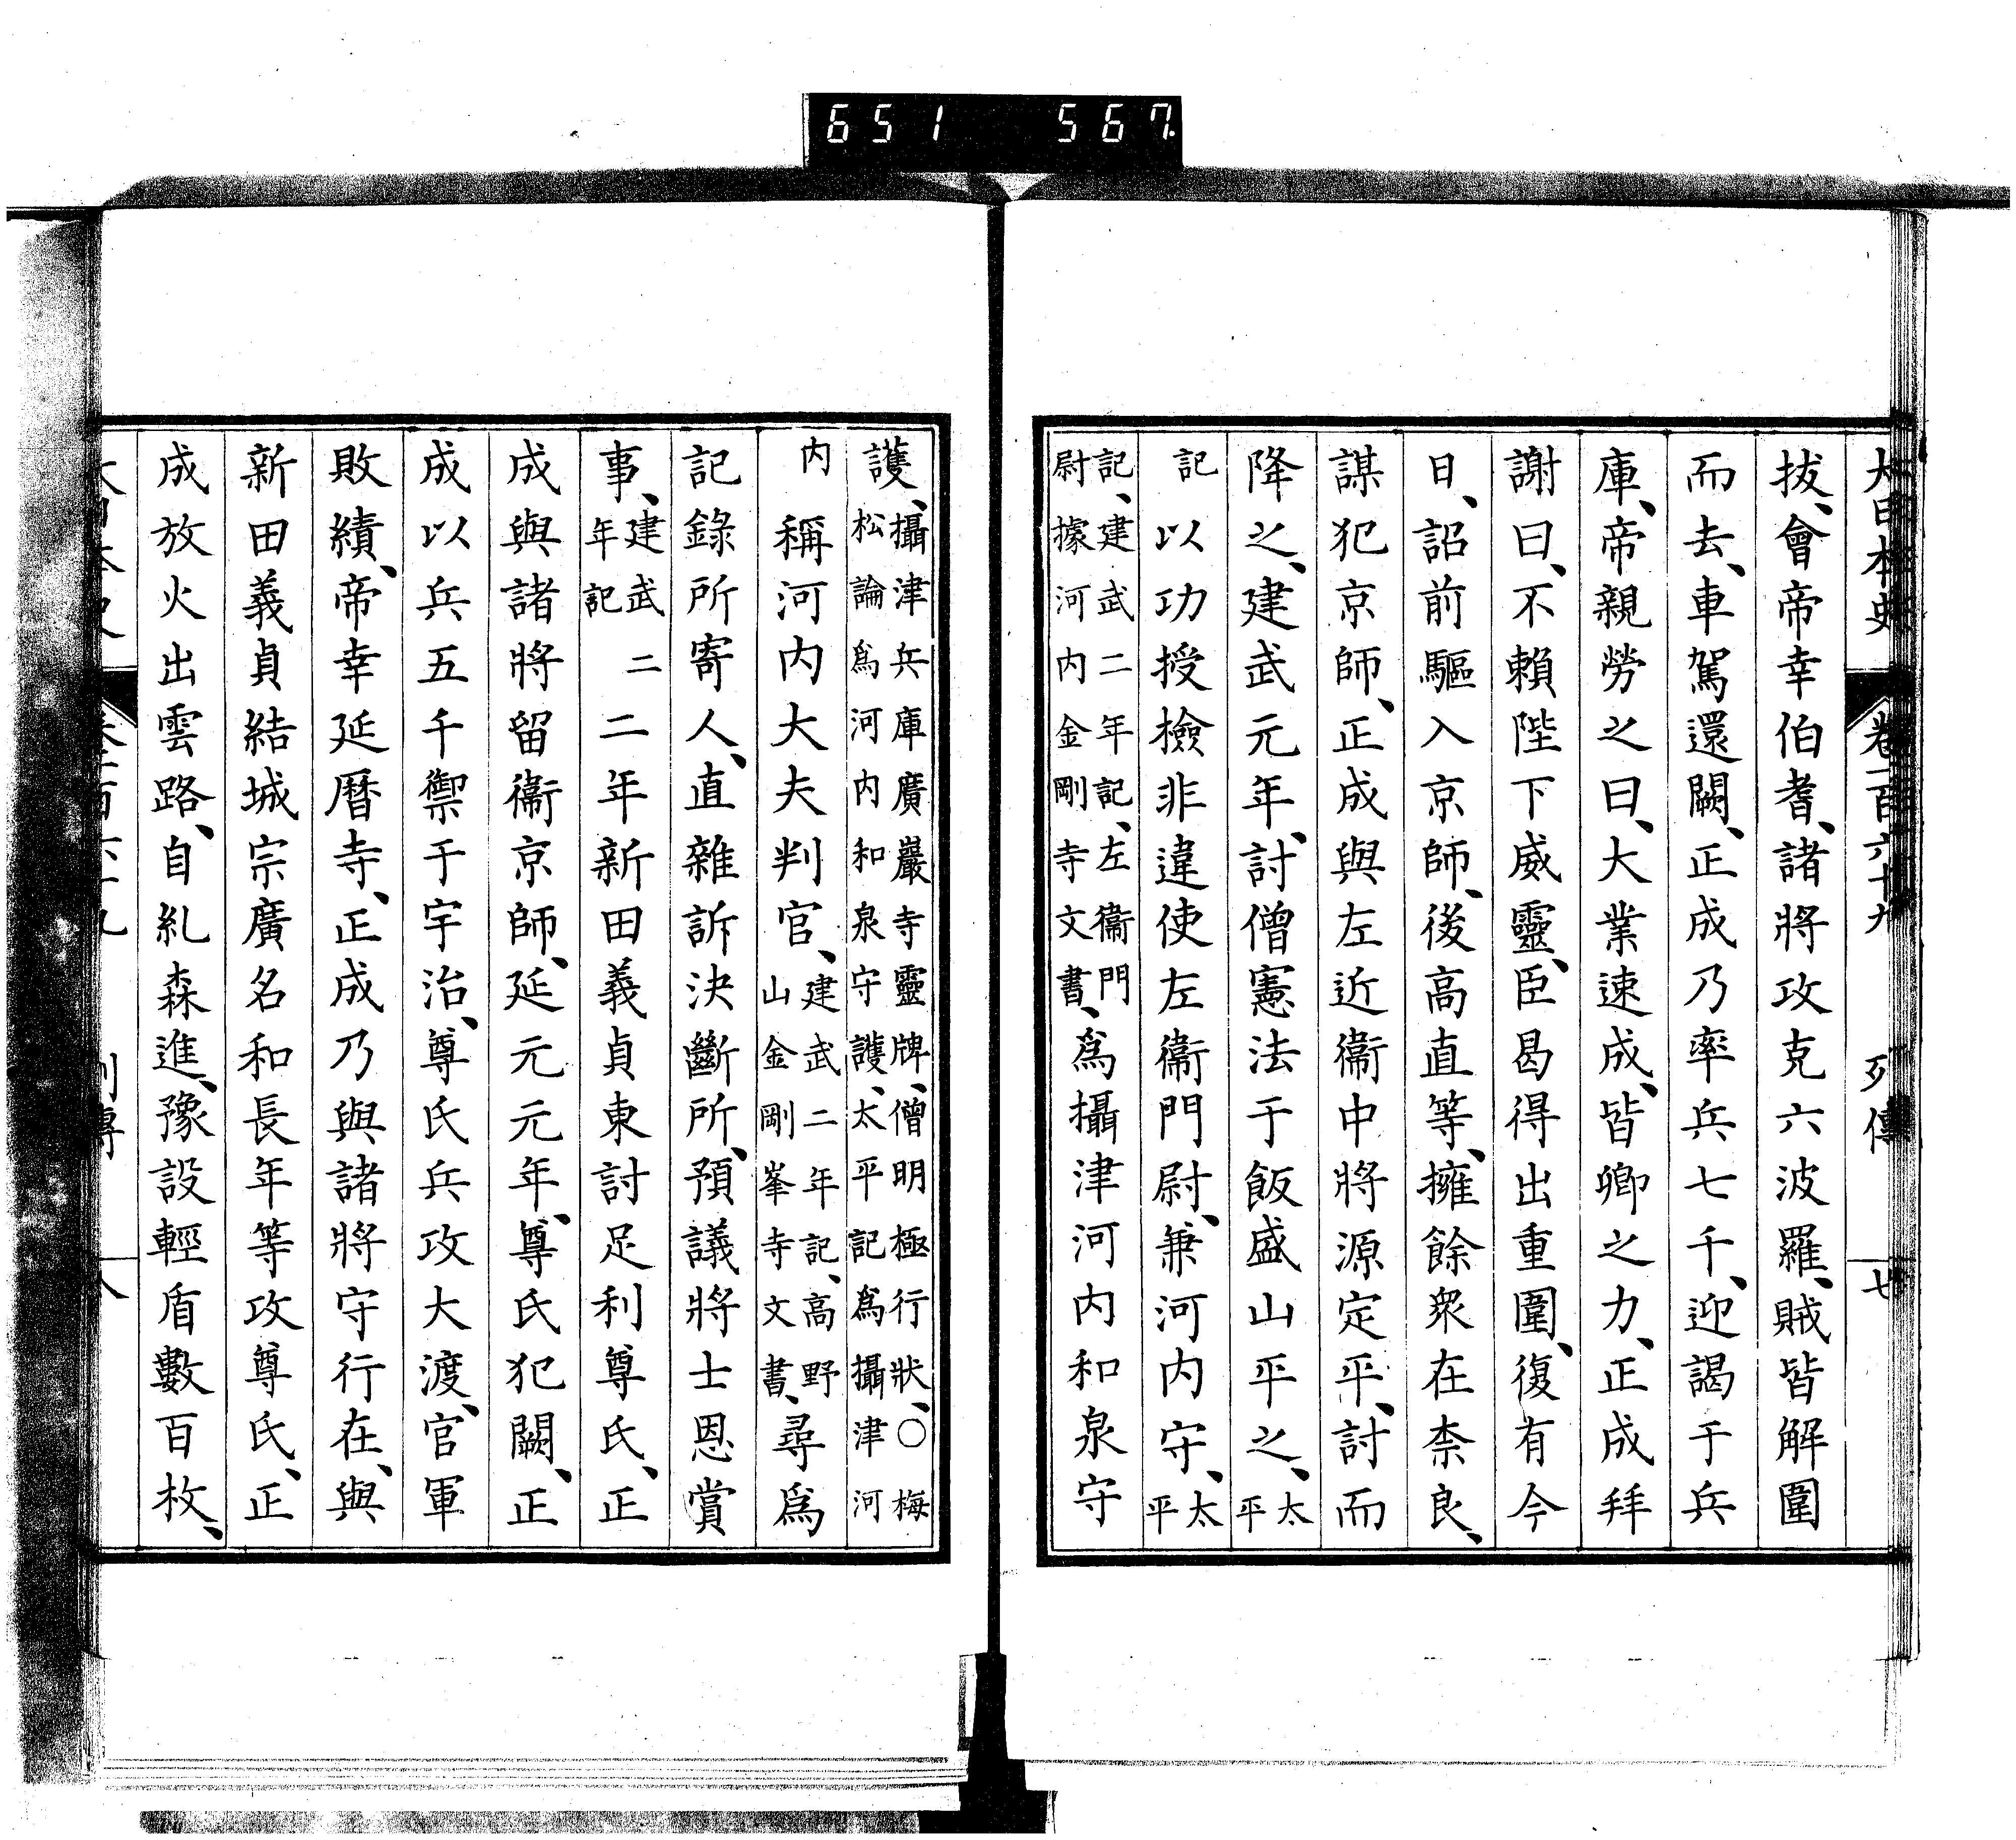 651 567
大日本史 卷一百六十九 列傳 七
拔、會帝幸伯耆、諸將攻克六波羅、賊皆解圍
而去、車駕還闕、正成乃率兵七千、迎謁于兵
庫、帝親勞之曰、大業速成、皆卿之力、正成拜
謝曰、不賴陛下威靈、臣曷得出重圍、復有今
日、詔前驅入京師、後高直等、擁餘衆在柰良、
謀犯京師、正成與左近衞中將源定平、討而
降之、建武元年、討僧憲法于飯盛山平之、太平
記以功授檢非違使左衞門尉、兼河内守、太平
記、建武二年記、左衞門尉據河内金剛寺文書、爲攝津河内和泉守
護、攝津兵庫廣嚴寺靈牌、僧明極行狀、○梅松論爲河内和泉守護、太平記爲攝津河
内稱河内大夫判官、建武二年記、高野山金剛峯寺文書、尋爲
記錄所寄人、直雜訴決斷所、預議將士恩賞
事、建武二年記二年新田義貞東討足利尊氏、正
成與諸將留衞京師、延元元年、尊氏犯闕、正
成以兵五千禦于宇治、尊氏兵攻大渡、官軍
敗績、帝幸延曆寺、正成乃與諸將守行在、與
新田義貞結城宗廣名和長年等攻尊氏、正
成放火出雲路、自糺森進、豫設輕盾數百枚、